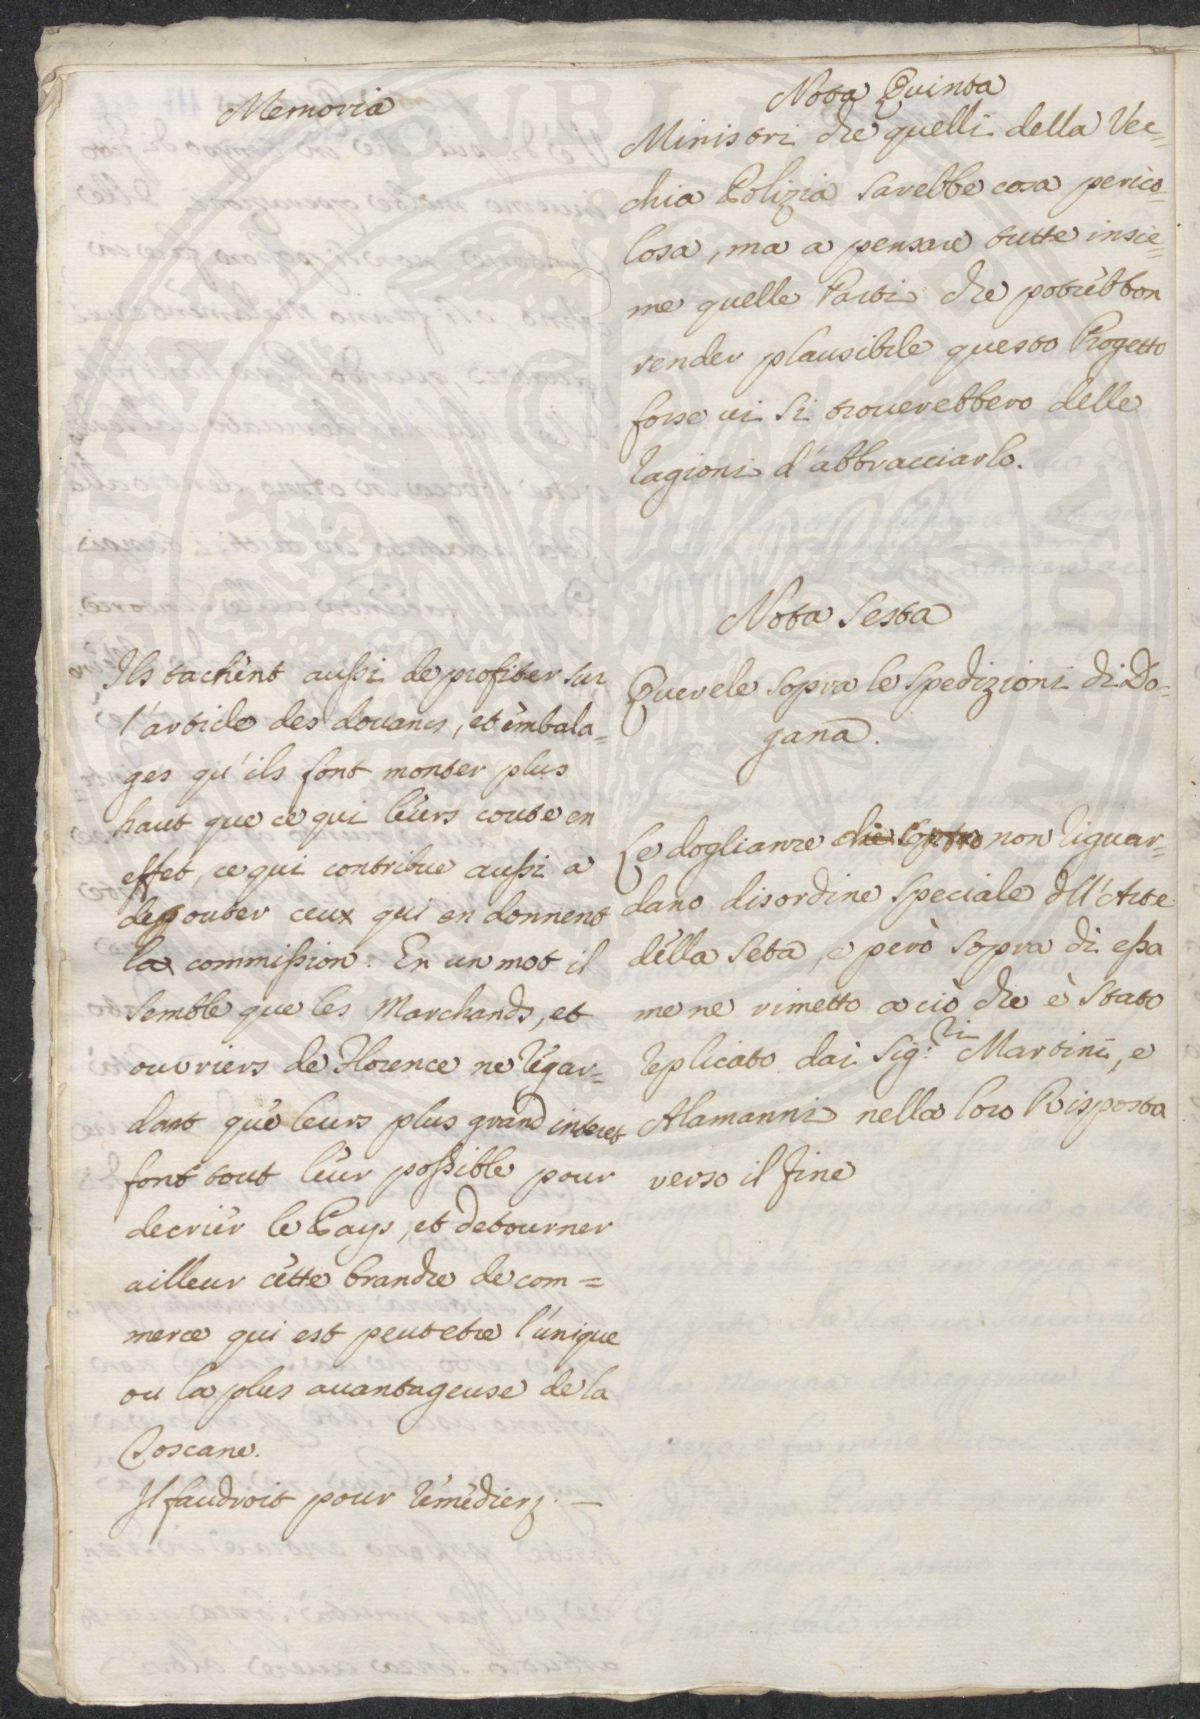 Memoria
Ils tachènt aussi de profiter sur
l'article des douanes, et èmbala=
ges qu'ils font monter plus
haut que ce qui lèurs coute en
effet, ce qui contribue aussi a
degouter ceux qui en donnent
la commission. En un mot il
semble que les Marchands, et
ouvriers de Florence ne règar=
dant què leurs plus grand interet
font tout lèur possible pour
decrièr le Pays, et detourner
ailleur cètte branche de com=
merce qui est peutetre l'ùnique
ou la plus avantageuse de la
Toscane.
Il faudroit pour rèmèdierz. —
Nota Quinta
Ministri che quelli della Vec=
chia Polizia sarebbe cosa perico=
losa, ma a pensare tutte insie=
me quelle Parti che potrèbbon
render plausibile questo Progetto
forse vi si troverebbero delle
ragioni d'abbracciarlo.
Nota Sesta
Querele sopra le spedizioni di Do=
gana.
Le doglianze che sopra non riguar=
dano disordine speciale dll'Arte
dèlla Seta, e però sopra di essa
me ne rimetto a ciò che è stato
replicato dai Sig:ri Martini, e
Alamanni nella loro Risposta
verso il fine